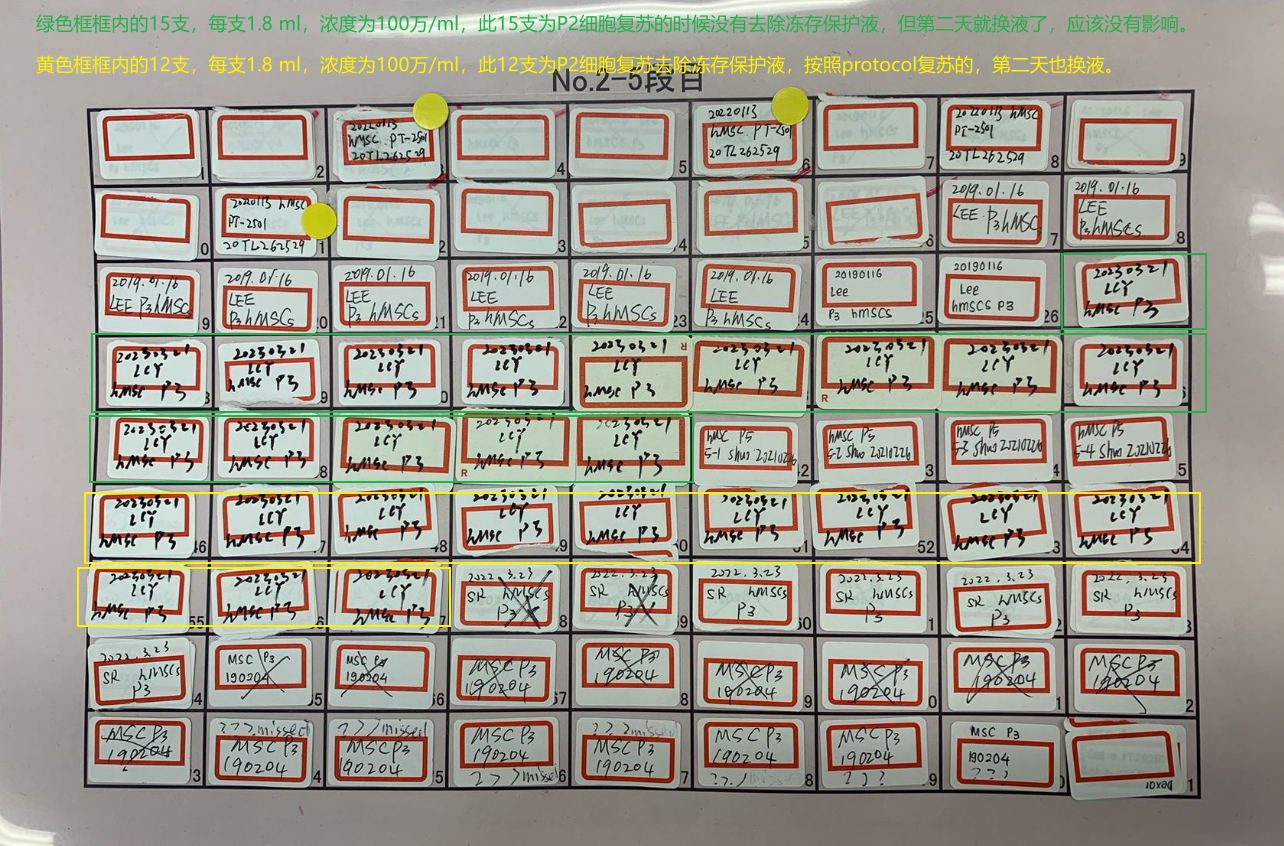 绿色框框内的15支，每支1.8 ml，浓度为100万/ml，此15支为P2细胞复苏的时候没有去除冻存保护液，但第二天就换液了，应该没有影响。
黄色框框内的12支，每支1.8 ml，浓度为100万/ml，此12支为P2细胞复苏去除冻存保护液，按照protocol复苏的，第二天也换液。
No.2-5段目
1
2
20220113
hMSC PT-2501
20TL262529
4
5
20220113
hMSC PT-2501
20TL262529
6
7
20220113 hMSC
PT-2501
20TL262529
8
9
0
20220113 hMSC
PT-2501
20TL262529
1
2
3
4
5
6
2019.01.16
LEE P3hMSCs
7
2019.01.16
LEE
P3hMSCs
8
2019.01.16
LEE P3hMSCs
9
2019.01.16
LEE
P3hMSCs
0
2019.01.16
LEE
P3hMSCs
21
2019.01.16
LEE
P3hMSCs
2
2019.01.16
LEE
P3hMSCs
23
2019.01.16
LEE
P3hMSCs
24
20190116
Lee
P3 hMSCS
25
20190116
Lee
hMSCS P3
26
20230321
LCY
hMSC P3
20230321
LCY
hMSC P3
20230321
LCY
hMSC P3
9
20230321
LCY
hMSC P3
0
20230321
LCY
hMSC P3
20230321
LCY
hMSC P3
R
20230321
LCY
hMSC P3
20230321
LCY
hMSC P3
R
20230321
LCY
hMSC P3
20230321
LCY
hMSC P3
20230321
LCY
hMSC P3
20230321
LCY
hMSC P3
8
20230321
LCY
hMSC P3
20230321
LCY
hMSC P3
R
20230321
LCY
hMSC P3
hMSC P5
5-1 Shuo 20210226
42
hMSC P5
5-2 Shuo 20210226
3
hMSC P5
5-3 Shuo 20210226
4
hMSC P5
5-4 Shuo 20210226
5
20230321
LCY
hMSC P3
46
20230321
LCY
hMSC P3
7
20230321
LCY
hMSC P3
48
20230321
LCY
hMSC P3
9
20230321
LCY
hMSC P3
0
20230321
LCY
hMSC P3
51
20230321
LCY
hMSC P3
52
20230321
LCY
hMSC P3
3
20230321
LCY
hMSC P3
54
20230321
LCY
hMSC P3
55
20230321
LCY
hMSC P3
6
20230321
LCY
hMSC P3
7
2022.3.23
SR hMSCs
P3
8
2022.3.23
SR hMSCs
P3
9
2022.3.23
SR hMSCs
P3
60
2022.3.23
SR hMSCs
P3
1
2022.3.23
SR hMSCs
P3
2
2022.3.23
SR hMSCs
P3
3
2022.3.23
SR hMSCs
P3
4
MSC P3
190204
5
MSC P3
190204
66
MSC P3
190204
67
MSC P3
190204
8
MSC P3
190204
9
MSC P3
190204
0
MSC P3
190204
1
MSC P3
190204
2
MSC P3
190204
3
???missed
MSC P3
190204
4
???missed
MSC P3
190204
5
MSC P3
190204
???missed
6
???missed
MSC P3
190204
7
MSC P3
190204
???
8
MSC P3
190204
???
9
MSC P3
190204
???
0
1